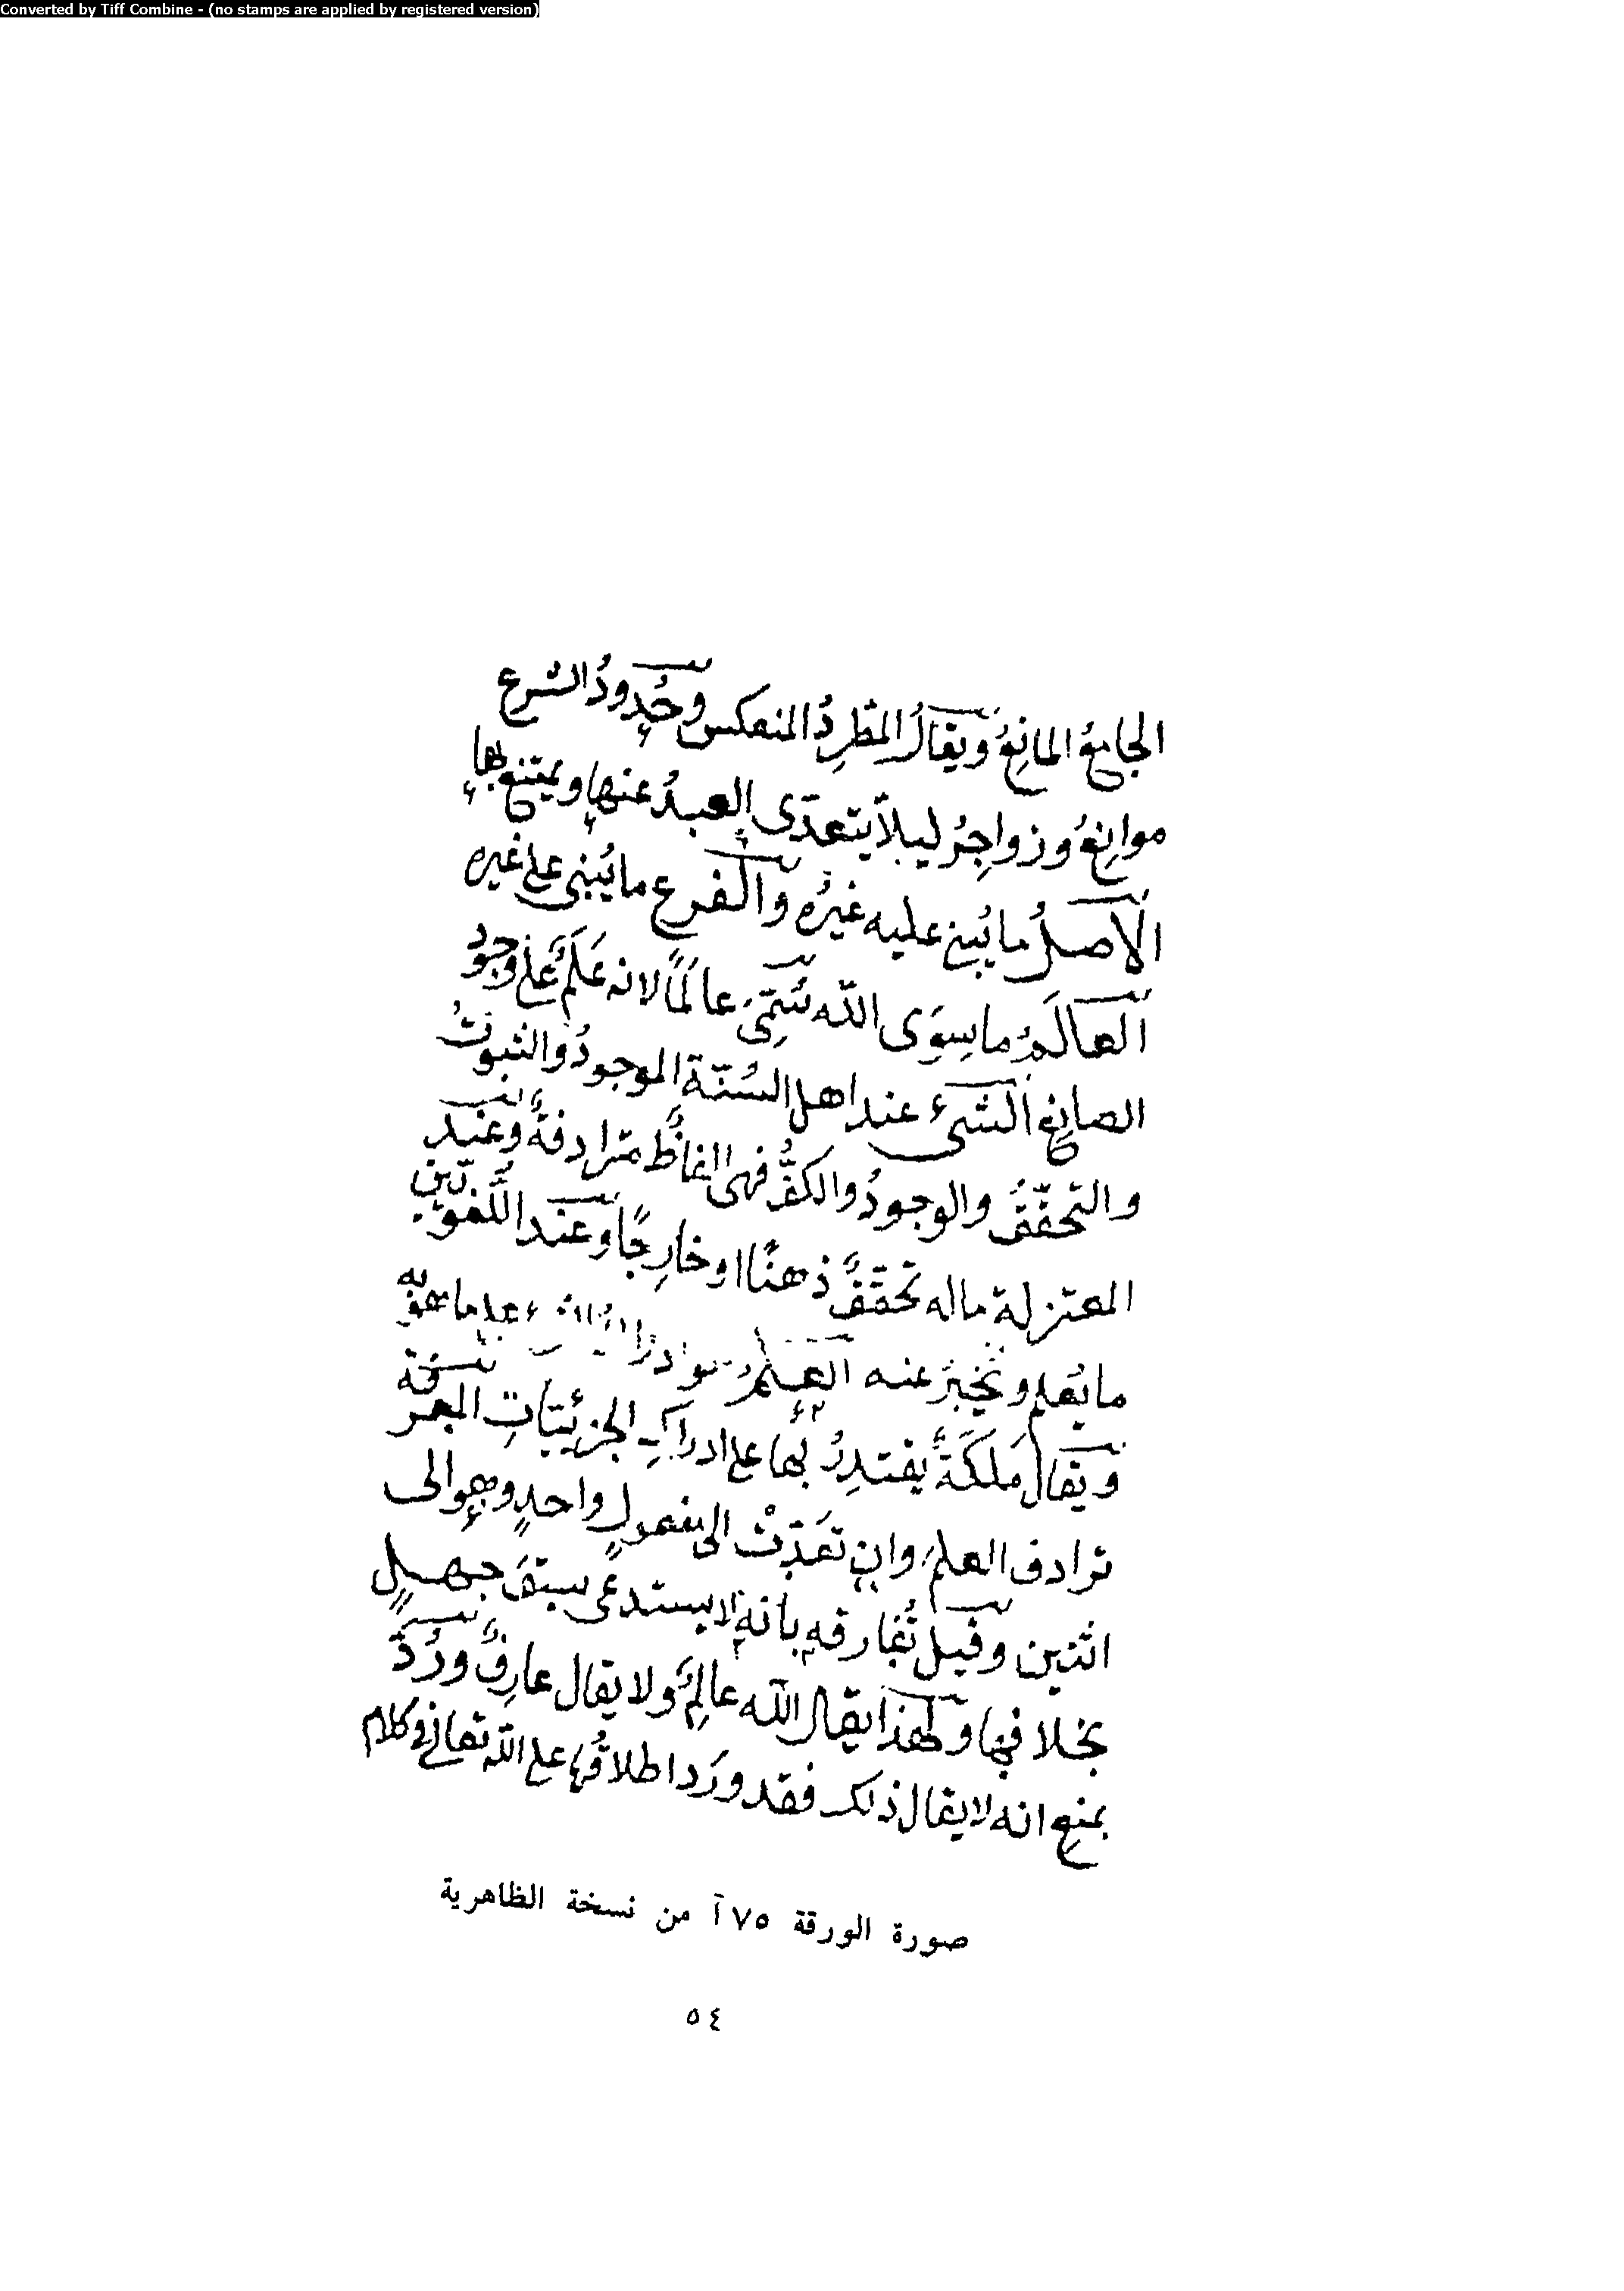 Converted by Tiff Combine - (no stamps are applied by registered version)
الجامعُ المانِعُ ويقالُ المطّرِدُ المنعكس وحُدودُ الشرع
موانِعُ وزواجِرُ ليلاّ يتعدّى العبدُ عنها ويمتنع بها
الأصلُ ما يُبنى عليه غيرُه والفرع ما يُبنى على غيره
العالَمُ ما سِوَى الله سُمِّيَ عالَمًا لانه عَلَمٌ على وجود
الصانِع الشىء عند اهل السُنّة الموجودُ والثبوتُ
والتحقّقُ والوجودُ والكَفُّ فهى الفاظٌ مترادفةٌ وعند
المعتزلة ماله تحقّقٌ ذهنًا او خارِجًا وعند اللّغويّين
ما يُعلم ويُخبَرُ عنه العلمُ على ما هو به
ويقال مَلَكَةٌ يقتدِرُ بها على ادراكِ الجزئيّاتِ المعرفة
ترادف العلمَ وان تعَدّتْ الى مفعولٍ واحدٍ وهو الى
اثنين وقيل تُفارقه بانه لا يستدعى سبقَ جهلٍ
بخلافها ولهذا يقال الله عالِمٌ ولا يقال عارِفٌ ورُدَّ
بمنع انه لا يقال ذلك فقد ورَد اطلاقُها على الله تعالى فى كلام
صورة الورقة ٧٥آ من نسخة الظاهرية
٥٤